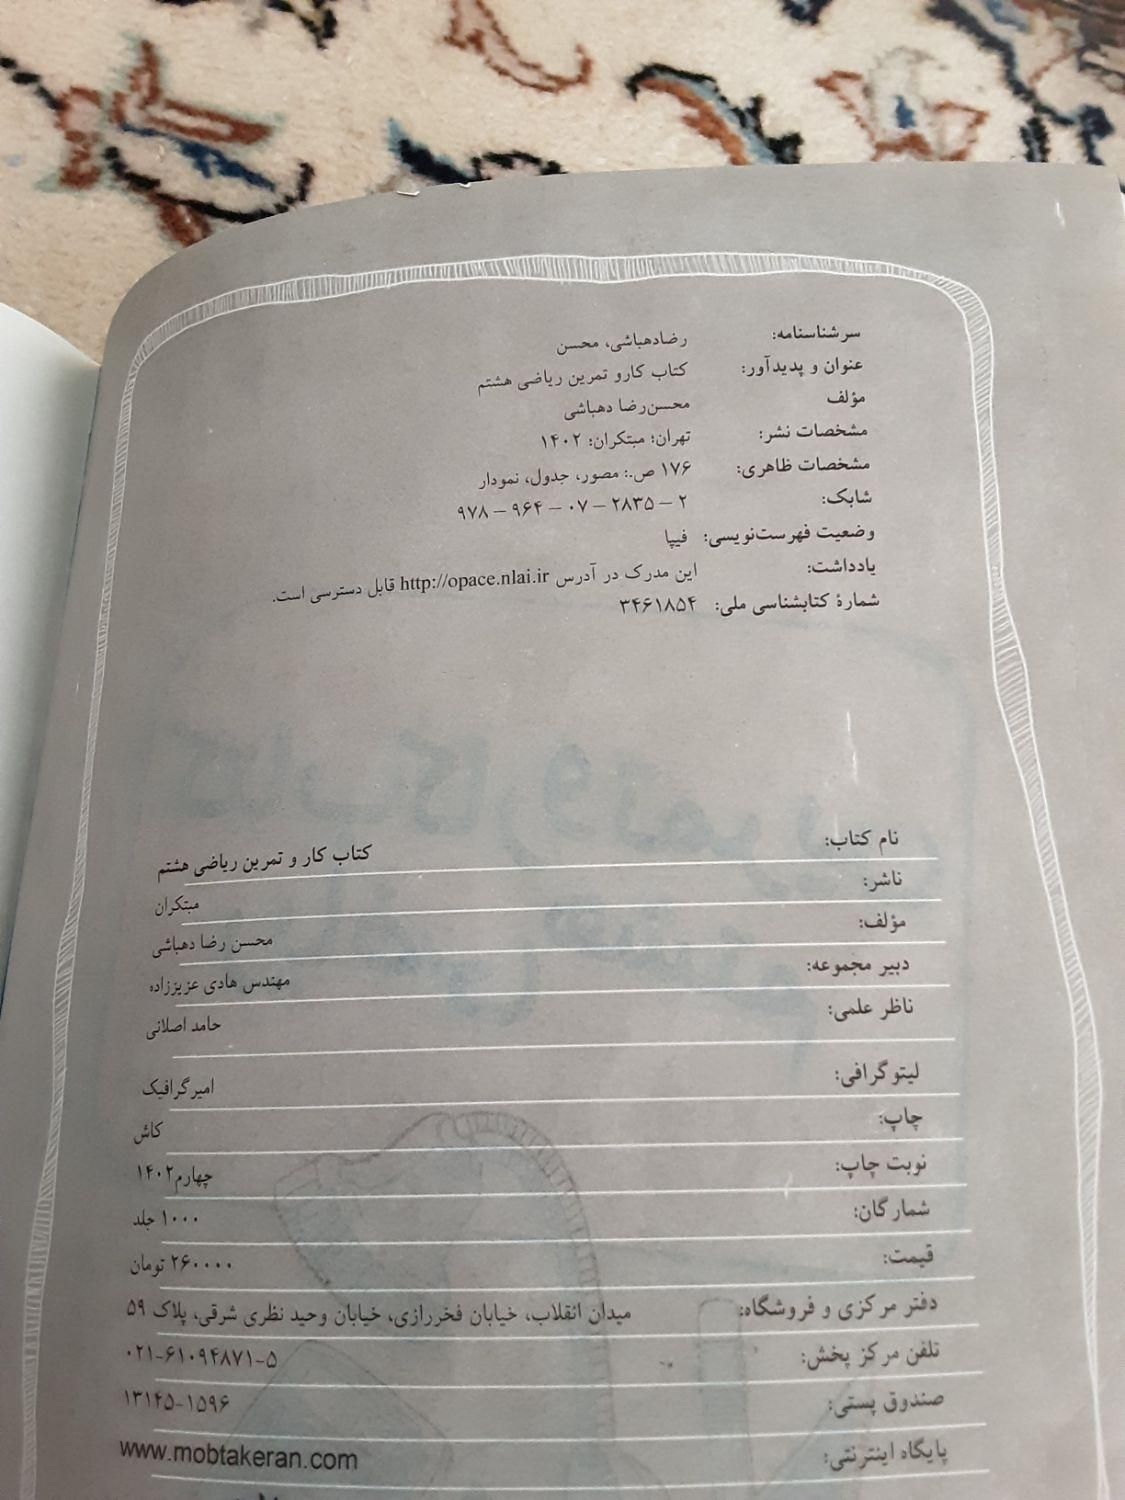 سرشناسنامه: رضادهباشی، محسن
عنوان و پدیدآور: کتاب کارو تمرین ریاضی هشتم
مؤلف محسن‌رضا دهباشی
مشخصات نشر: تهران؛ مبتکران؛ ۱۴۰۲
مشخصات ظاهری: ۱۷۶ ص.: مصور، جدول، نمودار
شابک: ۹۷۸ – ۹۶۴ – ۰۷ – ۲۸۳۵ – ۲
وضعیت فهرست‌نویسی: فیپا
یادداشت: این مدرک در آدرس http://opace.nlai.ir قابل دسترسی است.
شمارهٔ کتابشناسی ملی: ۳۴۶۱۸۵۴
نام کتاب: کتاب کار و تمرین ریاضی هشتم
ناشر: مبتکران
مؤلف: محسن رضا دهباشی
دبیر مجموعه: مهندس هادی عزیززاده
ناظر علمی: حامد اصلانی
لیتوگرافی: امیرگرافیک
چاپ: کاش
نوبت چاپ: چهارم ۱۴۰۲
شمارگان: ۱۰۰۰ جلد
قیمت: ۲۶۰۰۰۰ تومان
دفتر مرکزی و فروشگاه: میدان انقلاب، خیابان فخررازی، خیابان وحید نظری شرقی، پلاک ۵۹
تلفن مرکز پخش: ۰۲۱-۶۱۰۹۴۸۷۱-۵
صندوق پستی: ۱۳۱۴۵-۱۵۹۶
پایگاه اینترنتی: www.mobtakeran.com